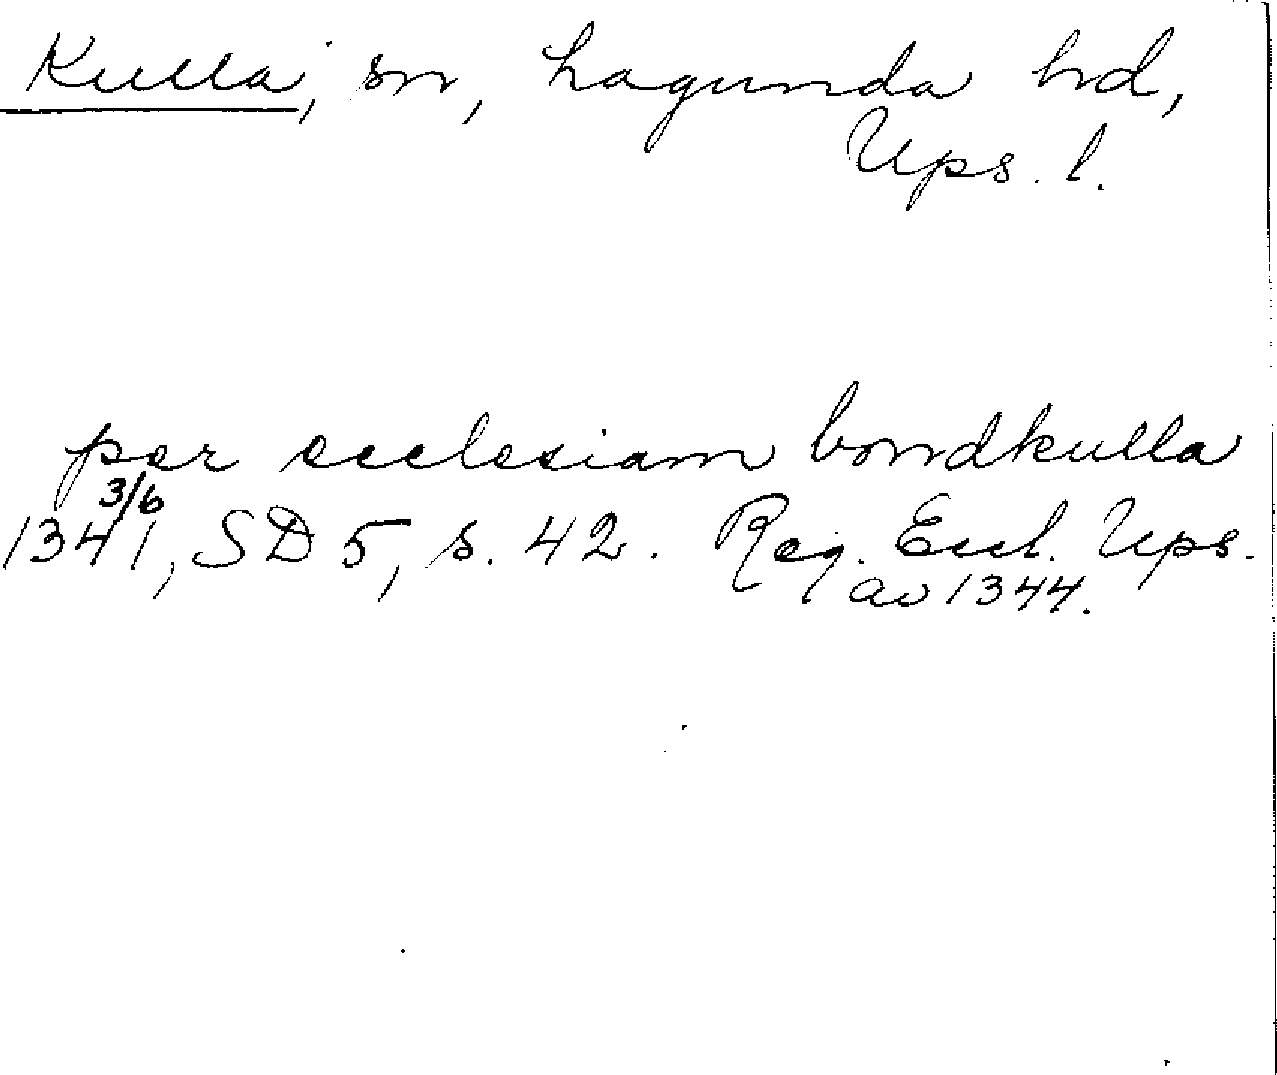 Kulla, sn, Lagunda hd,
Ups. l.
per ecclesiam bondkulla
3/6
1341, SD 5, s. 42. Reg. Eccl. Ups.
av 1344.